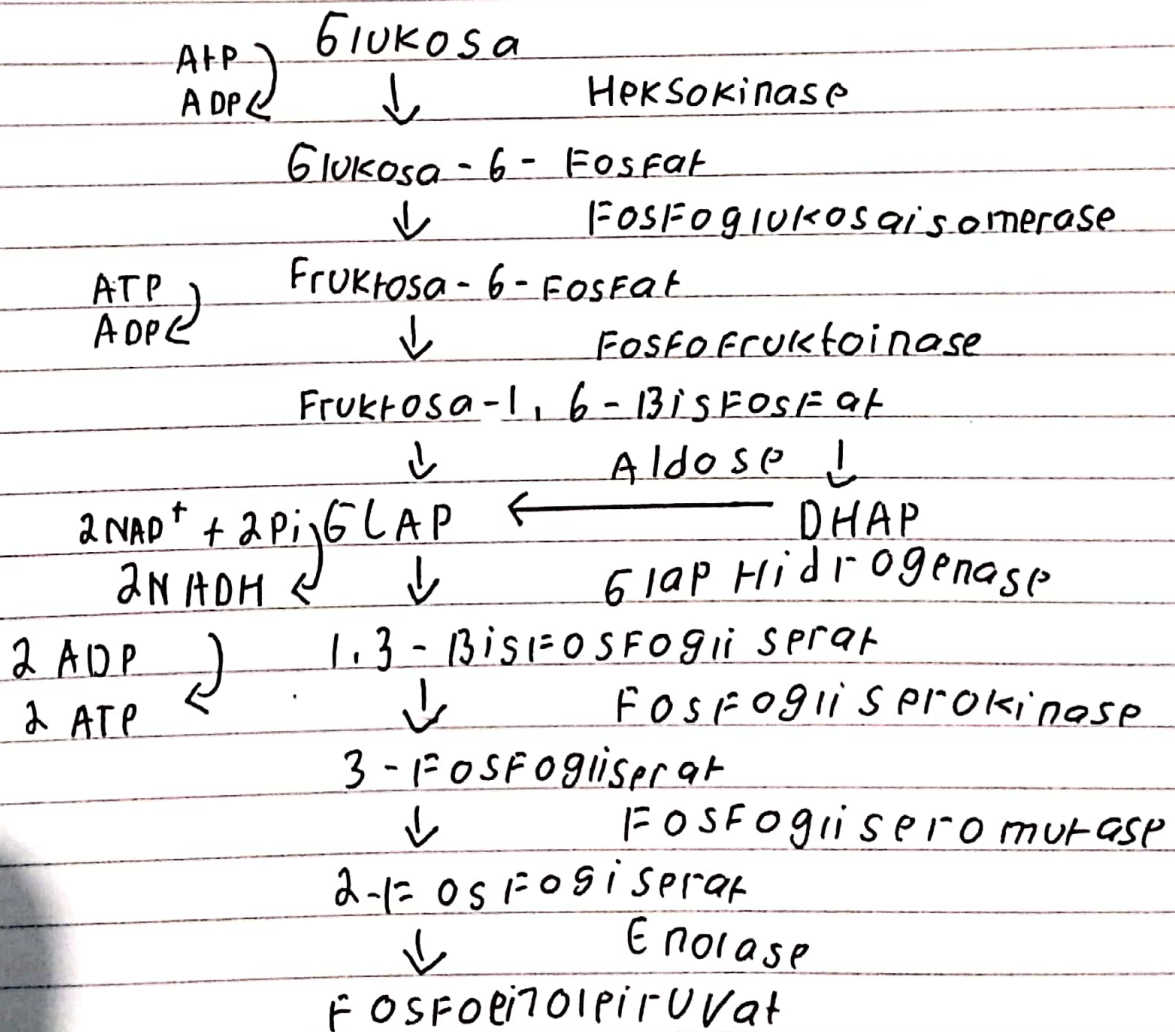 Glukosa
ATP
ADP
Heksokinase
Glukosa - 6 - Fosfat
Fosfoglukosaisomerase
ATP
ADP
Fruktosa - 6 - Fosfat
Fosfofruktoinase
Fruktosa-1, 6 - Bisfosfat
Aldose
2 NAD+ + 2Pi GLAP DHAP
2NADH Glap Hidrogenase
2 ADP 1,3 - Bisfosfogliserat
2 ATP Fosfogliserokinase
3 - Fosfogliserat
Fosfogliseromutase
2-Fosfogiserat
Enolase